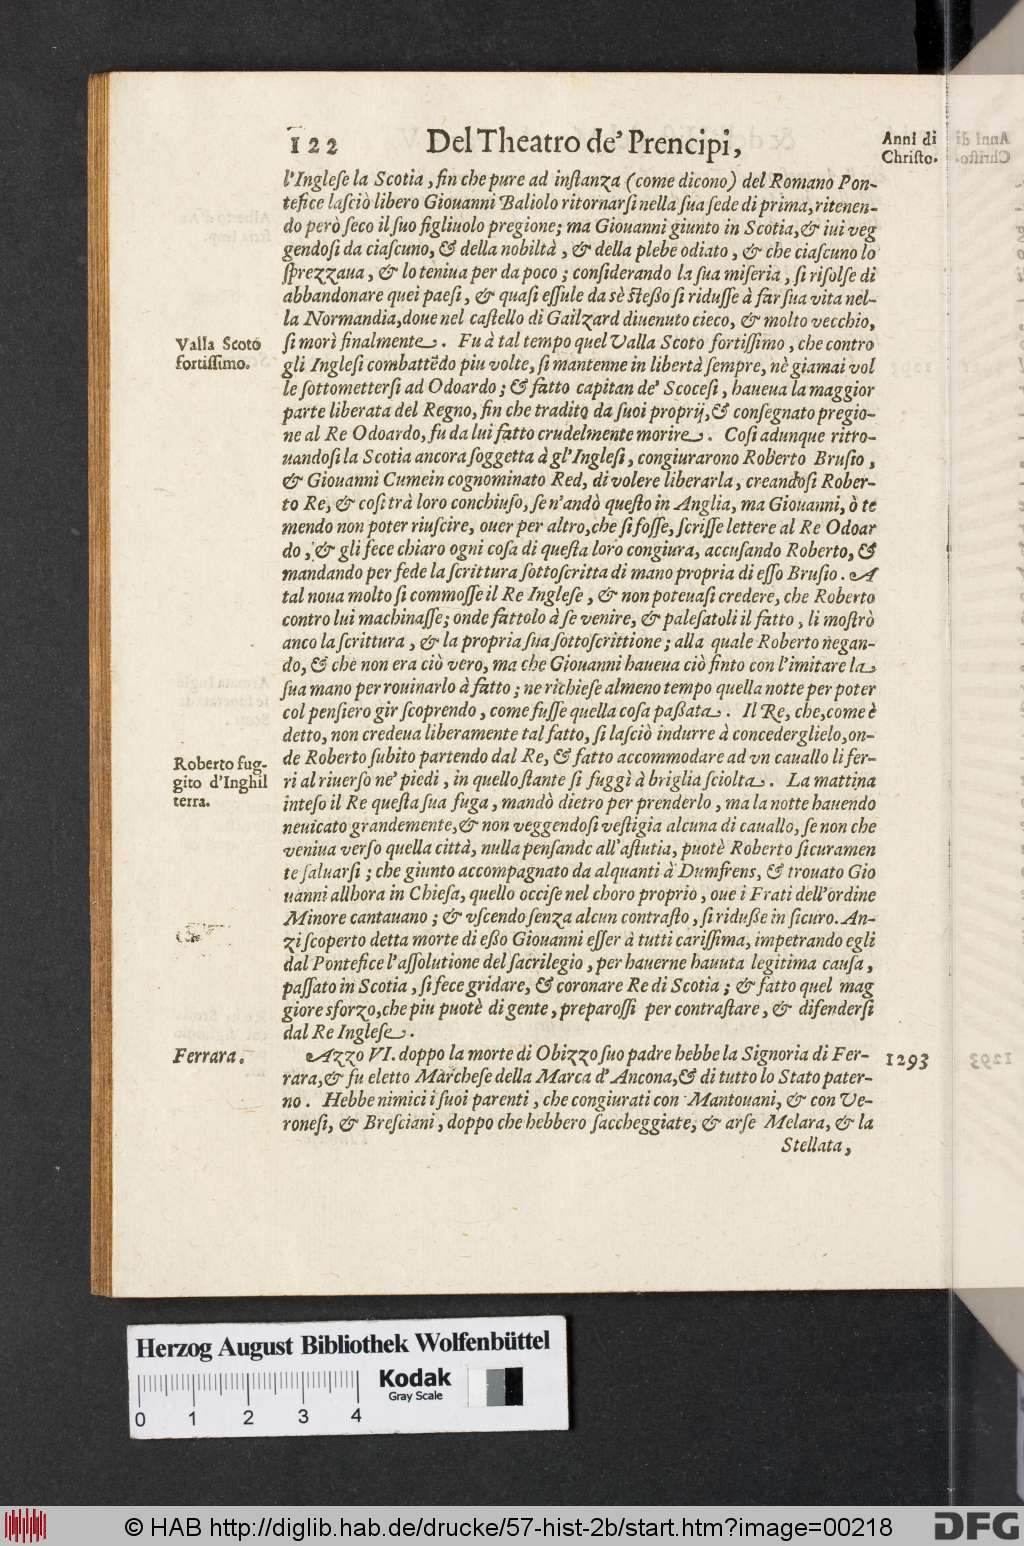 122 Del Theatro de' Prencipi,
Anni di
Christo.
l'Inglese la Scotia, fin che pure ad instanza (come dicono) del Romano Pon-
tefice lasciò libero Giouanni Baliolo ritornarsi nella sua sede di prima, ritenen-
do però seco il suo figliuolo pregione; ma Giouanni giunto in Scotia, & iui veg
gendosi da ciascuno, & della nobiltà, & della plebe odiato, & che ciascuno lo
sprezzaua, & lo teniua per da poco; considerando la sua miseria, si risolse di
abbandonare quei paesi, & quasi essule da sè stesso si ridusse à far sua vita nel-
la Normandia, doue nel castello di Gailzard diuenuto cieco, & molto vecchio,
si morì finalmente. Fu à tal tempo quel Valla Scoto fortissimo, che contro
gli Inglesi combattẽdo piu volte, si mantenne in libertà sempre, nè giamai vol
le sottomettersi ad Odoardo; & fatto capitan de' Scocesi, haueua la maggior
parte liberata del Regno, fin che tradito da suoi proprij, & consegnato pregio-
ne al Re Odoardo, fu da lui fatto crudelmente morire. Cosi adunque ritro-
uandosi la Scotia ancora soggetta à gl'Inglesi, congiurarono Roberto Brusio,
& Giouanni Cumein cognominato Red, di volere liberarla, creandosi Rober-
to Re, & cosi trà loro conchiuso, se n'andò questo in Anglia, ma Giouanni, ò te
mendo non poter riuscire, ouer per altro, che si fosse, scrisse lettere al Re Odoar
do, & gli fece chiaro ogni cosa di questa loro congiura, accusando Roberto, &
mandando per fede la scrittura sottoscritta di mano propria di esso Brusio. A
tal noua molto si commosse il Re Inglese, & non poteuasi credere, che Roberto
contro lui machinasse; onde fattolo à se venire, & palesatoli il fatto, li mostrò
anco la scrittura, & la propria sua sottoscrittione; alla quale Roberto negan-
do, & che non era ciò vero, ma che Giouanni haueua ciò finto con l'imitare la
sua mano per rouinarlo à fatto; ne richiese almeno tempo quella notte per poter
col pensiero gir scoprendo, come fusse quella cosa passata. Il Re, che, come è
detto, non credeua liberamente tal fatto, si lasciò indurre à concederglielo, on-
de Roberto subito partendo dal Re, & fatto accommodare ad vn cauallo li fer-
ri al riuerso ne' piedi, in quello stante si fuggì à briglia sciolta. La mattina
inteso il Re questa sua fuga, mandò dietro per prenderlo, ma la notte hauendo
neuicato grandemente, & non veggendosi vestigia alcuna di cauallo, se non che
veniua verso quella città, nulla pensando all'astutia, puotè Roberto sicuramen
te saluarsi; che giunto accompagnato da alquanti à Dumfrens, & trouato Gio
uanni allhora in Chiesa, quello occise nel choro proprio, oue i Frati dell'ordine
Minore cantauano; & vscendo senza alcun contrasto, si ridusse in sicuro. An-
zi scoperto detta morte di esso Giouanni esser à tutti carissima, impetrando egli
dal Pontefice l'assolutione del sacrilegio, per hauerne hauuta legitima causa,
passato in Scotia, si fece gridare, & coronare Re di Scotia; & fatto quel mag
giore sforzo, che piu puotè di gente, preparossi per contrastare, & difendersi
dal Re Inglese.
Azzo VI. doppo la morte di Obizzo suo padre hebbe la Signoria di Fer-
rara, & fu eletto Marchese della Marca d'Ancona, & di tutto lo Stato pater-
no. Hebbe nimici i suoi parenti, che congiurati con Mantouani, & con Ve-
ronesi, & Bresciani, doppo che hebbero saccheggiate, & arse Melara, & la
Stellata,
Valla Scoto
fortissimo.
Roberto fug-
gito d'Inghil
terra.
Ferrara.
1293
Herzog August Bibliothek Wolfenbüttel
Kodak
Gray Scale
0 1 2 3 4
© HAB http://diglib.hab.de/drucke/57-hist-2b/start.htm?image=00218
DFG